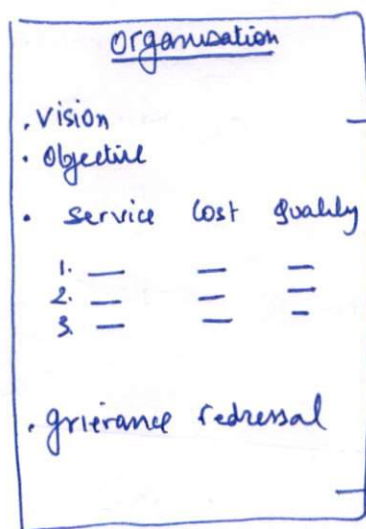 Organisation
• Vision
• Objective
• Service Cost Quality
1. — — —
2. — — —
3. — — —
• grievance redressal